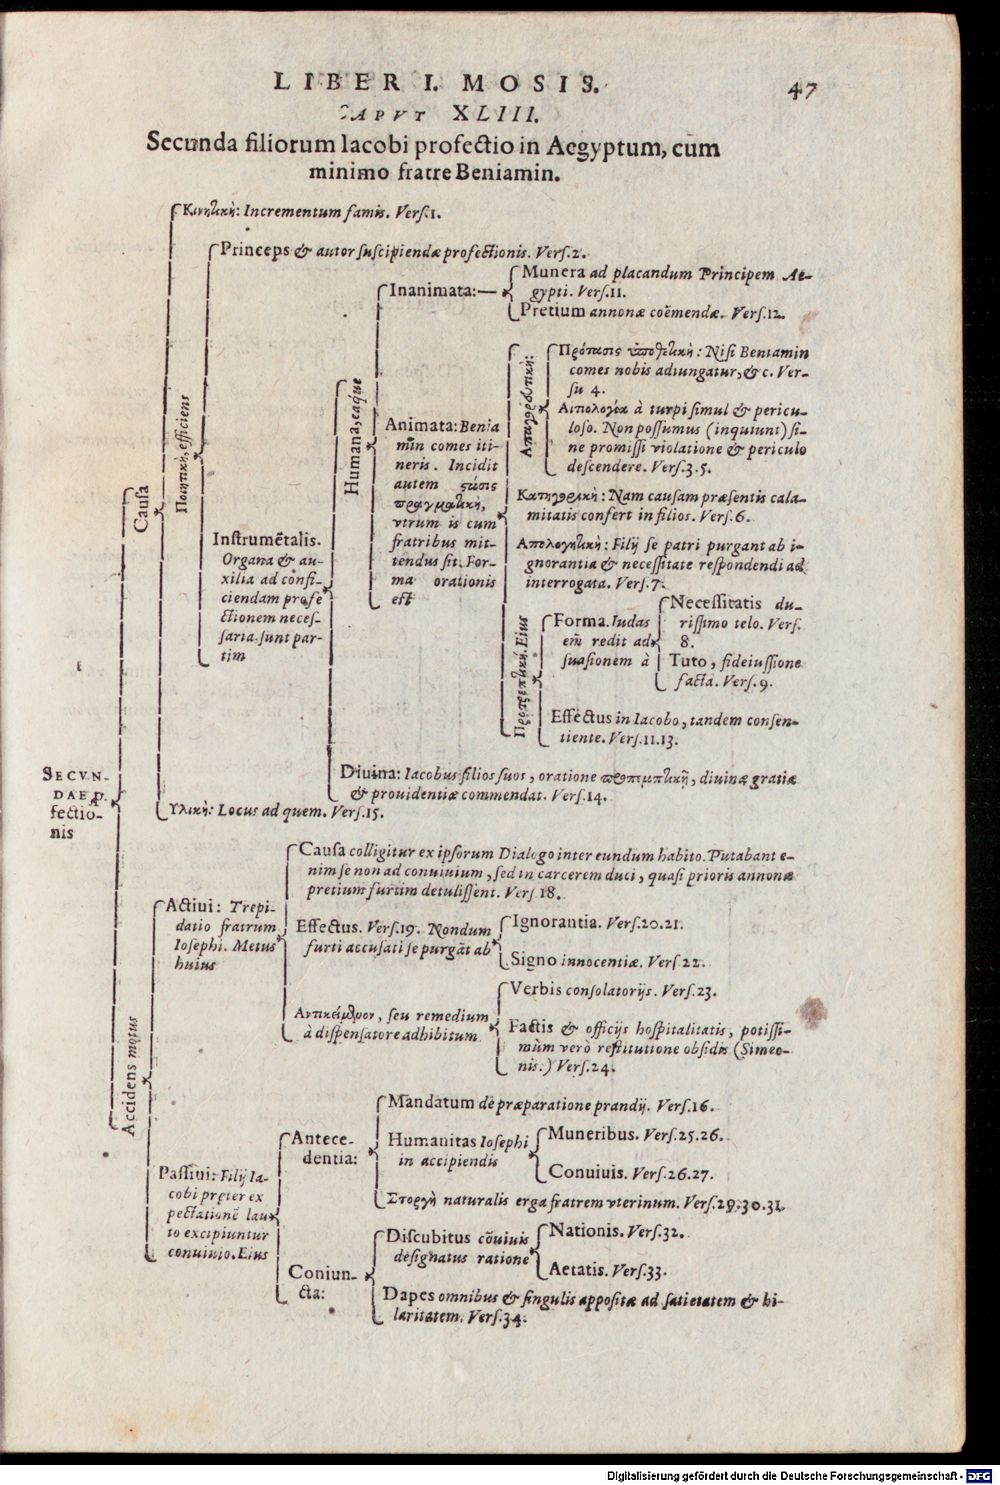 LIBER I. MOSIS.
47
CAPVT XLIII.
Secunda filiorum Iacobi profectio in Aegyptum, cum
minimo fratre Beniamin.
Κινητικὴ: Incrementum famis. Vers.1.
Princeps & autor suscipiendæ profectionis. Vers.2.
Inanimata:
Munera ad placandum Principem Ae-
gypti. Vers.11.
Pretium annonæ coëmendæ. Vers.12.
Humana, eaq́ue
Animata: Benia
min comes iti-
neris. Incidit
autem
πραγματικὴ,
vtrum is cum
fratribus mit-
tendus sit. For-
ma orationis
est
Πρότασις ὑποθετικὴ: Nisi Beniamin
comes nobis adiungatur, & c. Ver-
su 4.
Αιτιολογία à turpi simul & pericu-
loso. Non possumus (inquiunt) si-
ne promissi violatione & periculo
descendere. Vers.3.5.
Κατηγορικὴ: Nam causam præsentis cala-
mitatis confert in filios. Vers.6.
Απολογητικὴ: Filij se patri purgant ab i-
gnorantia & necessitate respondendi ad
interrogata. Vers.7.
Προτρεπτικὴ. Eius
Forma. Iudas
em̃ redit ad
suasionem à
Necessitatis du-
rissimo telo. Vers.
8.
Tuto, fideiussione
facta. Vers.9.
Effectus in Iacobo, tandem consen-
tiente. Vers.11.13.
Causa
Ποιητικὴ, efficiens
Instrumẽtalis.
Organa & au-
xilia ad confi-
ciendam profe
ctionem neces-
saria, sunt par-
tim
Diuina: Iacobus filios suos, oratione προπεμπτικῇ, diuinæ gratiæ
& prouidentiæ commendat. Vers.14.
Υλικὴ: Locus ad quem. Vers.15.
SECVN-
DAE P.
fectio-
nis
Accidens motus
Actiui: Trepi-
datio fratrum
Iosephi. Metus
huius
Causa colligitur ex ipsorum Dialogo inter eundum habito. Putabant e-
nim se non ad conuiuium, sed in carcerem duci, quasi prioris annonæ
pretium furtim detulissent. Vers.18.
Effectus. Vers.19. Nondum
furti accusati se purgãt ab
Ignorantia. Vers.20.21.
Signo innocentiæ. Vers.22.
Αντικείμενον, seu remedium
à dispensatore adhibitum
Verbis consolatorijs. Vers.23.
Factis & officijs hospitalitatis, potissi-
mùm verò restitutione obsidis (Simeo-
nis.) Vers.24.
Passiui: Filij Ia-
cobi præter ex
pectationẽ lau
to excipiuntur
conuiuio. Eius
Antece-
dentia:
Mandatum de præparatione prandij. Vers.16.
Humanitas Iosephi
in accipiendis
Muneribus. Vers.25.26.
Conuiuis. Vers.26.27.
Στοργὴ naturalis erga fratrem vterinum. Vers.29.30.31.
Coniun-
cta:
Discubitus cõuiuis
designatus ratione
Nationis. Vers.32.
Aetatis. Vers.33.
Dapes omnibus & singulis appositæ ad satietatem & hi-
laritatem. Vers.34.
Digitalisierung gefördert durch die Deutsche Forschungsgemeinschaft - DFG